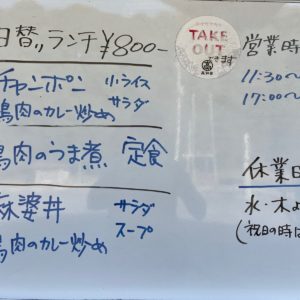 日替リランチ ¥800-
チャンポン 小ライス
鶏肉のカレー炒め サラダ
鶏肉のうま煮 定食
麻婆丼 サラダ
鶏肉のカレー炒め スープ
TAKE
OUT
できます
営業時
11:30〜
17:00〜
休業日
水・木よ
(祝日の時は